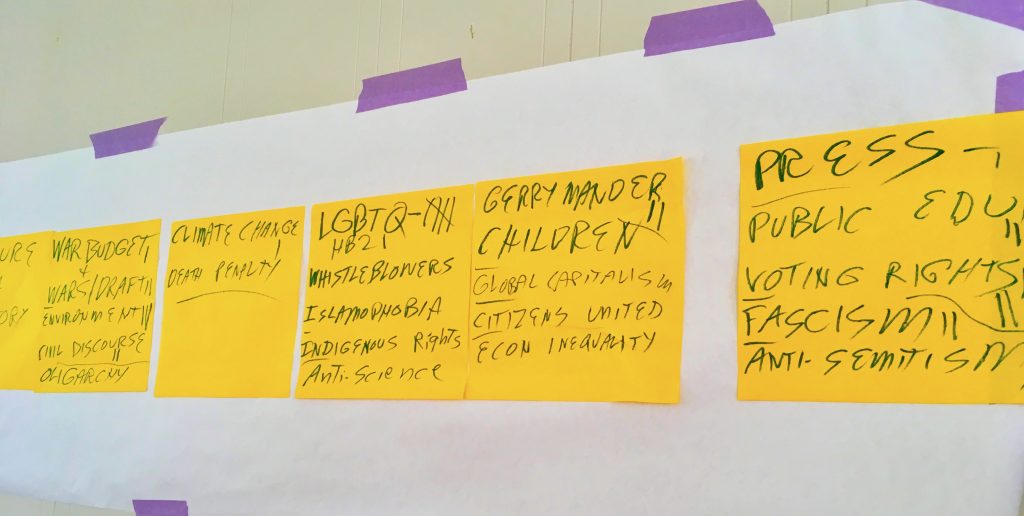 URE
ORY
WAR BUDGET
+
WARS/DRAFT
ENVIRONMENT
CIVIL DISCOURSE
OLIGARCHY
CLIMATE CHANGE
DEATH PENALTY
LGBTQ-
HB21
WHISTLEBLOWERS
ISLAMOPHOBIA
INDIGENOUS Rights
Anti-Science
GERRYMANDER
CHILDREN
GLOBAL CAPITALISM
CITIZENS UNITED
ECON INEQUALITY
PRESS -
PUBLIC EDU
VOTING RIGHTS
FASCISM
ANTI-SEMITISM